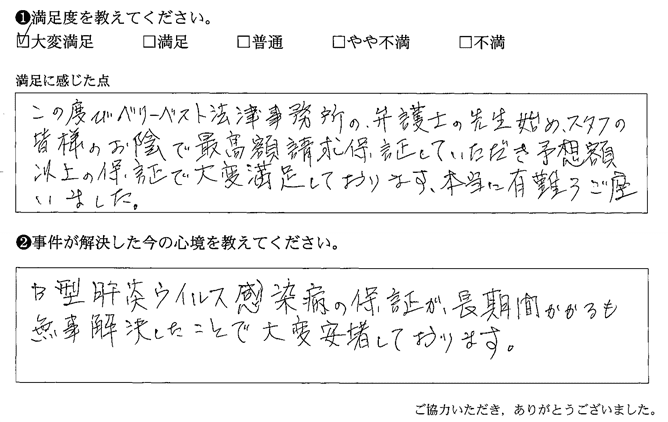 ❶満足度を教えてください。
☑大変満足 □満足 □普通 □やや不満 □不満
満足に感じた点
この度びベリーベスト法津事務所の、弁護士の先生始め、スタフの
皆様のお陰で最高額請求保証していただき予想額
以上の保証で大変満足しております、本当に有難うご座
いました。
❷事件が解決した今の心境を教えてください。
B型肝炎ウイルス感染病の保証が、長期間かかるも
無事解決したことで大変安堵しております。
ご協力いただき，ありがとうございました。